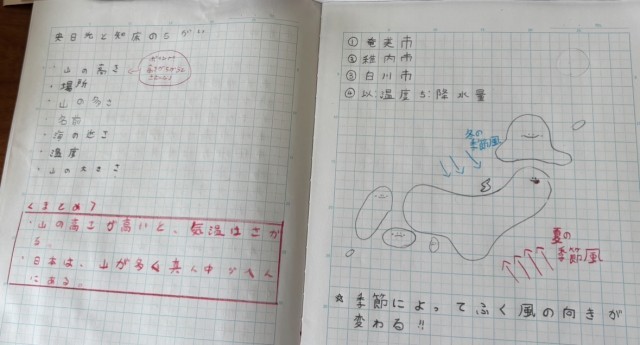 奥日光と知床のちがい
・山の高さ
・場所
・山の多さ
・名前
・海の近さ
・温度
・山の大きさ
<まとめ>
・山の高さが高いと、気温はさが
る。
・日本は、山が多く真ん中
にある。
① 奄美市
② 稚内市
③ 白川市
④ い:温度 ろ:降水量
冬の
季節風
夏の
季節風
☆ 季節によってふく風の向きが
変わる!!